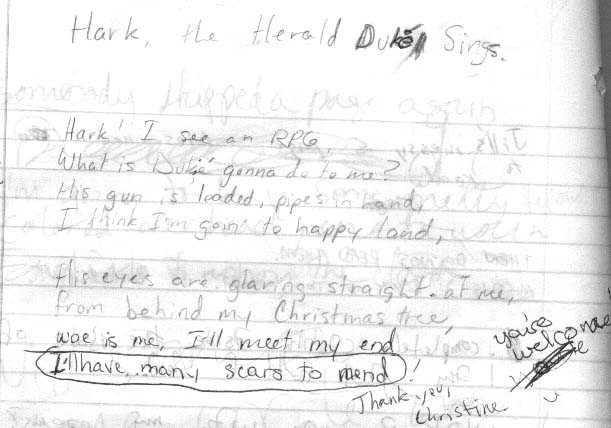 Hark, the Herald Duke Sings.
Somebody skipped a page again
Hark! I see an RPG,
What is Duke gonna do to me?
His gun is loaded, pipes in hand,
I think I'm goin' to happy land,
His eyes are glaring straight at me,
from behind my Christmas tree,
woe is me, I'll meet my end
I'll have many scars to mend!
Thank you, Christine
you're welcome